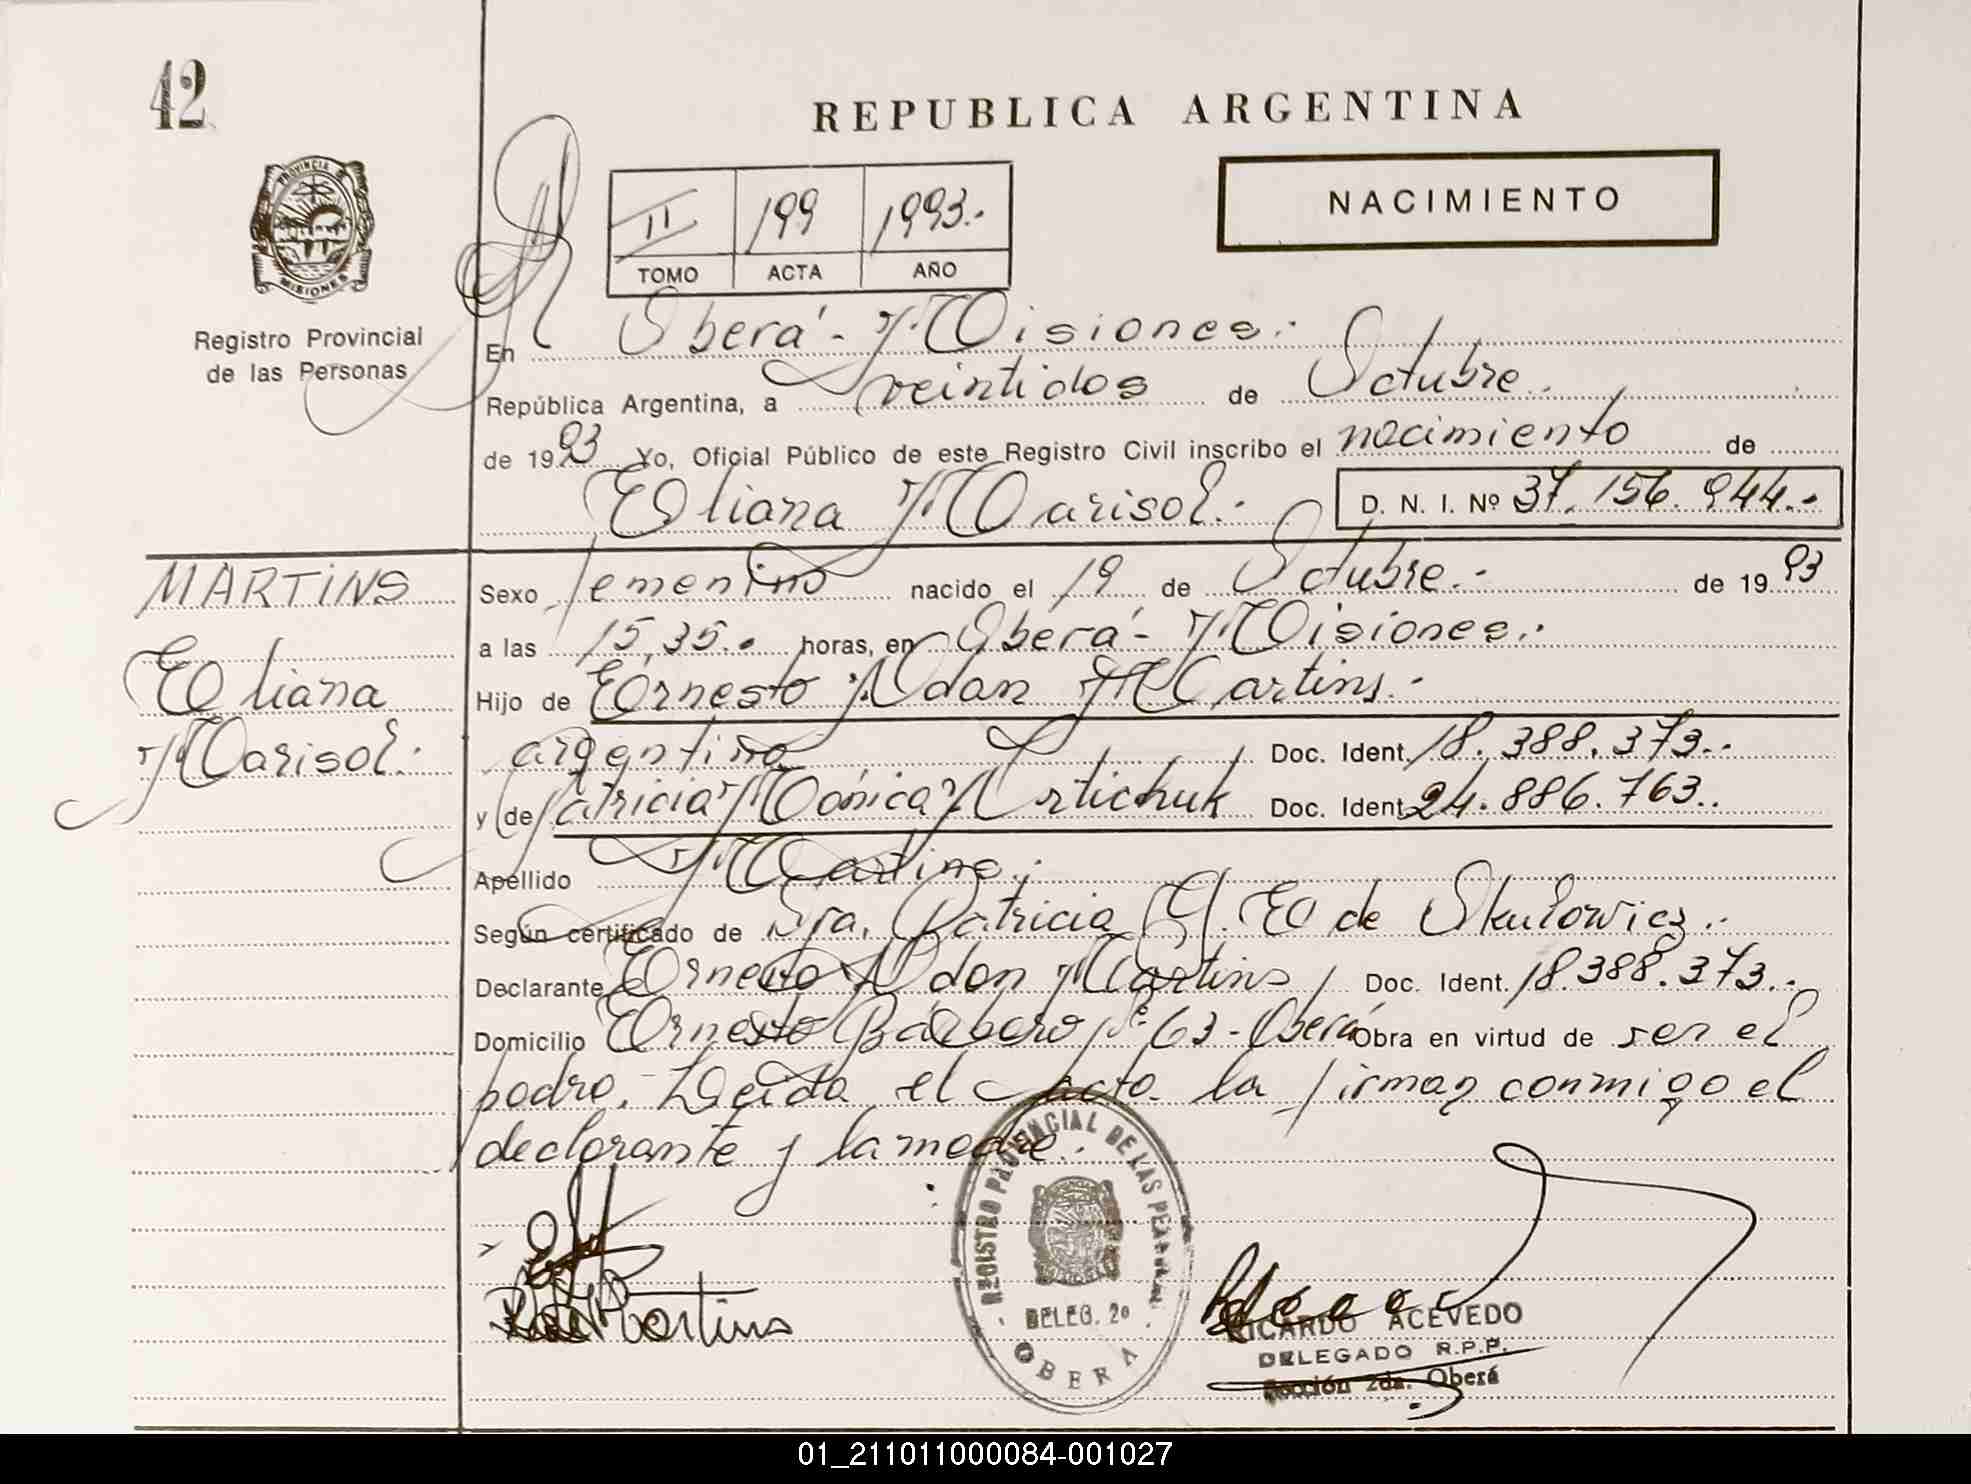 42
REPUBLICA ARGENTINA
NACIMIENTO
II 199 1993.-
TOMO ACTA AÑO
PROVINCIA DE
MISIONES
Registro Provincial
de las Personas
En Oberá - Misiones.-
República Argentina, a veintidos de Octubre.
de 1993 Yo, Oficial Público de este Registro Civil inscribo el nacimiento de
Eliana Marisol.- D. N. I. Nº 37.156.944.-
MARTINS
Eliana
Marisol.-
Sexo femenino nacido el 19 de Octubre.- de 1993
a las 15,35.- horas, en Oberá - Misiones.-
Hijo de Ernesto Adan Martins.-
argentino Doc. Ident. 18.388.373.-
y de Patricia Mónica Artichuk Doc. Ident. 24.886.763.-
Apellido Martins.-
Según certificado de Dra. Patricia G. E de Skulowicz.-
Declarante Ernesto Adan Martins Doc. Ident. 18.388.373.-
Domicilio Ernesto Bárbaro Nº 63 - Oberá Obra en virtud de ser el
padre. Leída el acta la firman conmigo el
declarante y la madre.-
REGISTRO PROVINCIAL DE LAS PERSONAS
DELEG. 2º
OBERA
Martins
RICARDO ACEVEDO
DELEGADO R.P.P.
Sección 2da. Oberá
01_211011000084-001027